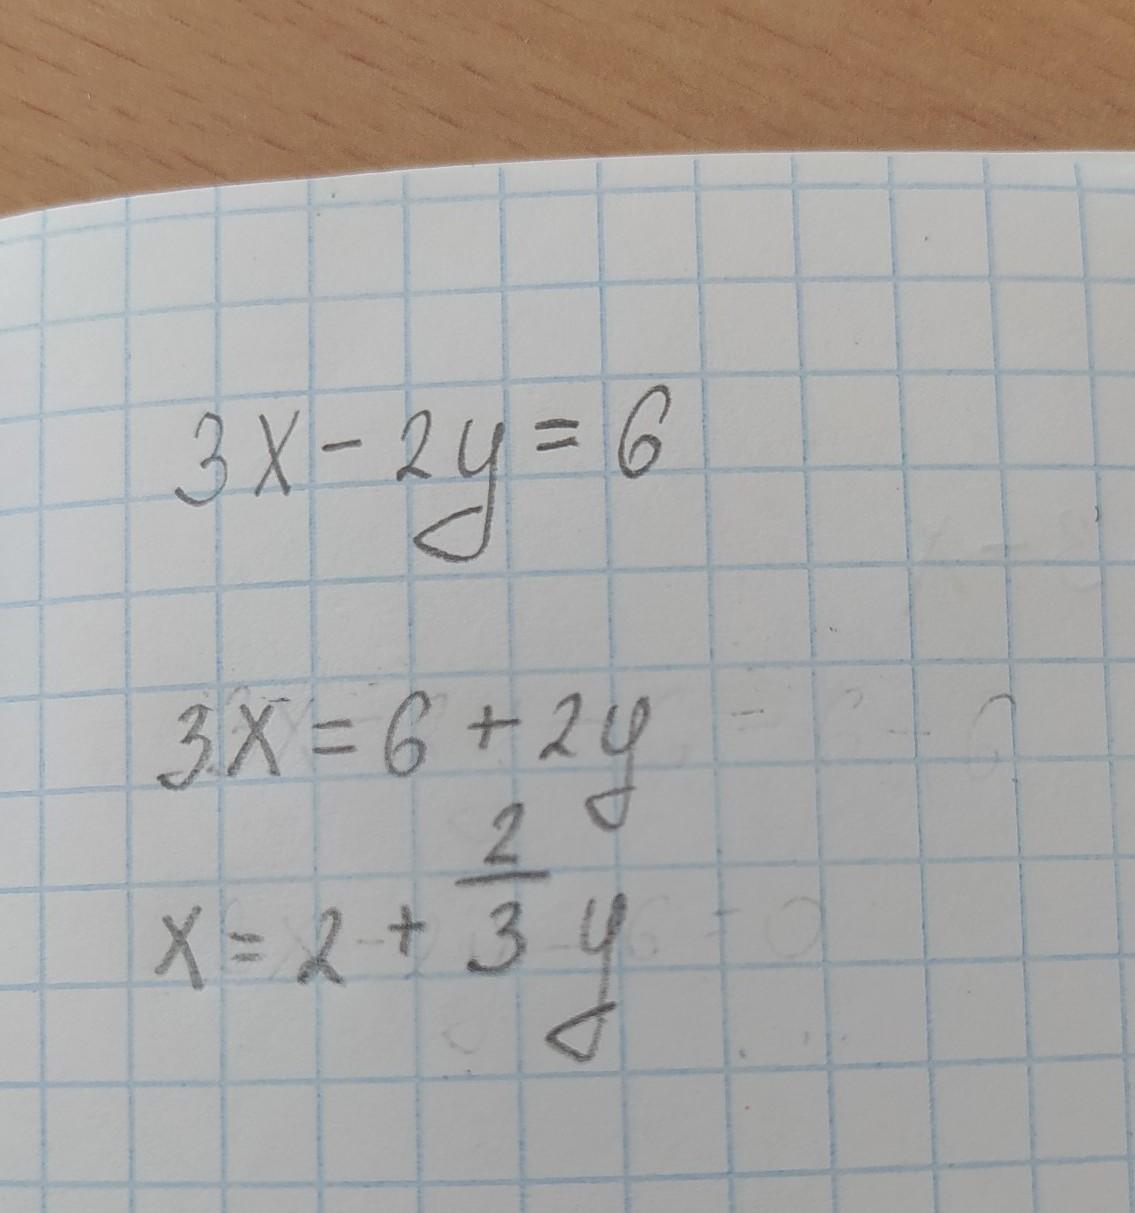 3x - 2y = 6
3x = 6 + 2y
x = 2 + 2/3 y